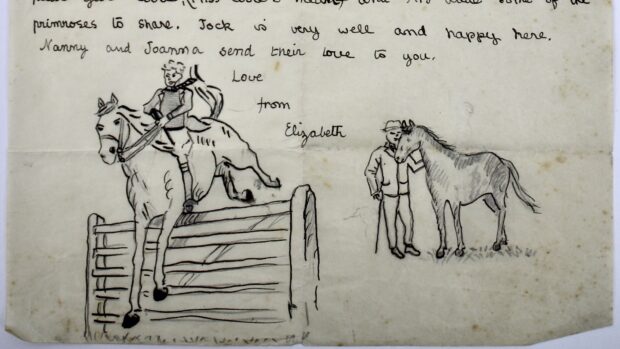 some of the
primroses to share. Jock is very well and happy here.
Nanny and Joanna send their love to you.
Love
from
Elizabeth